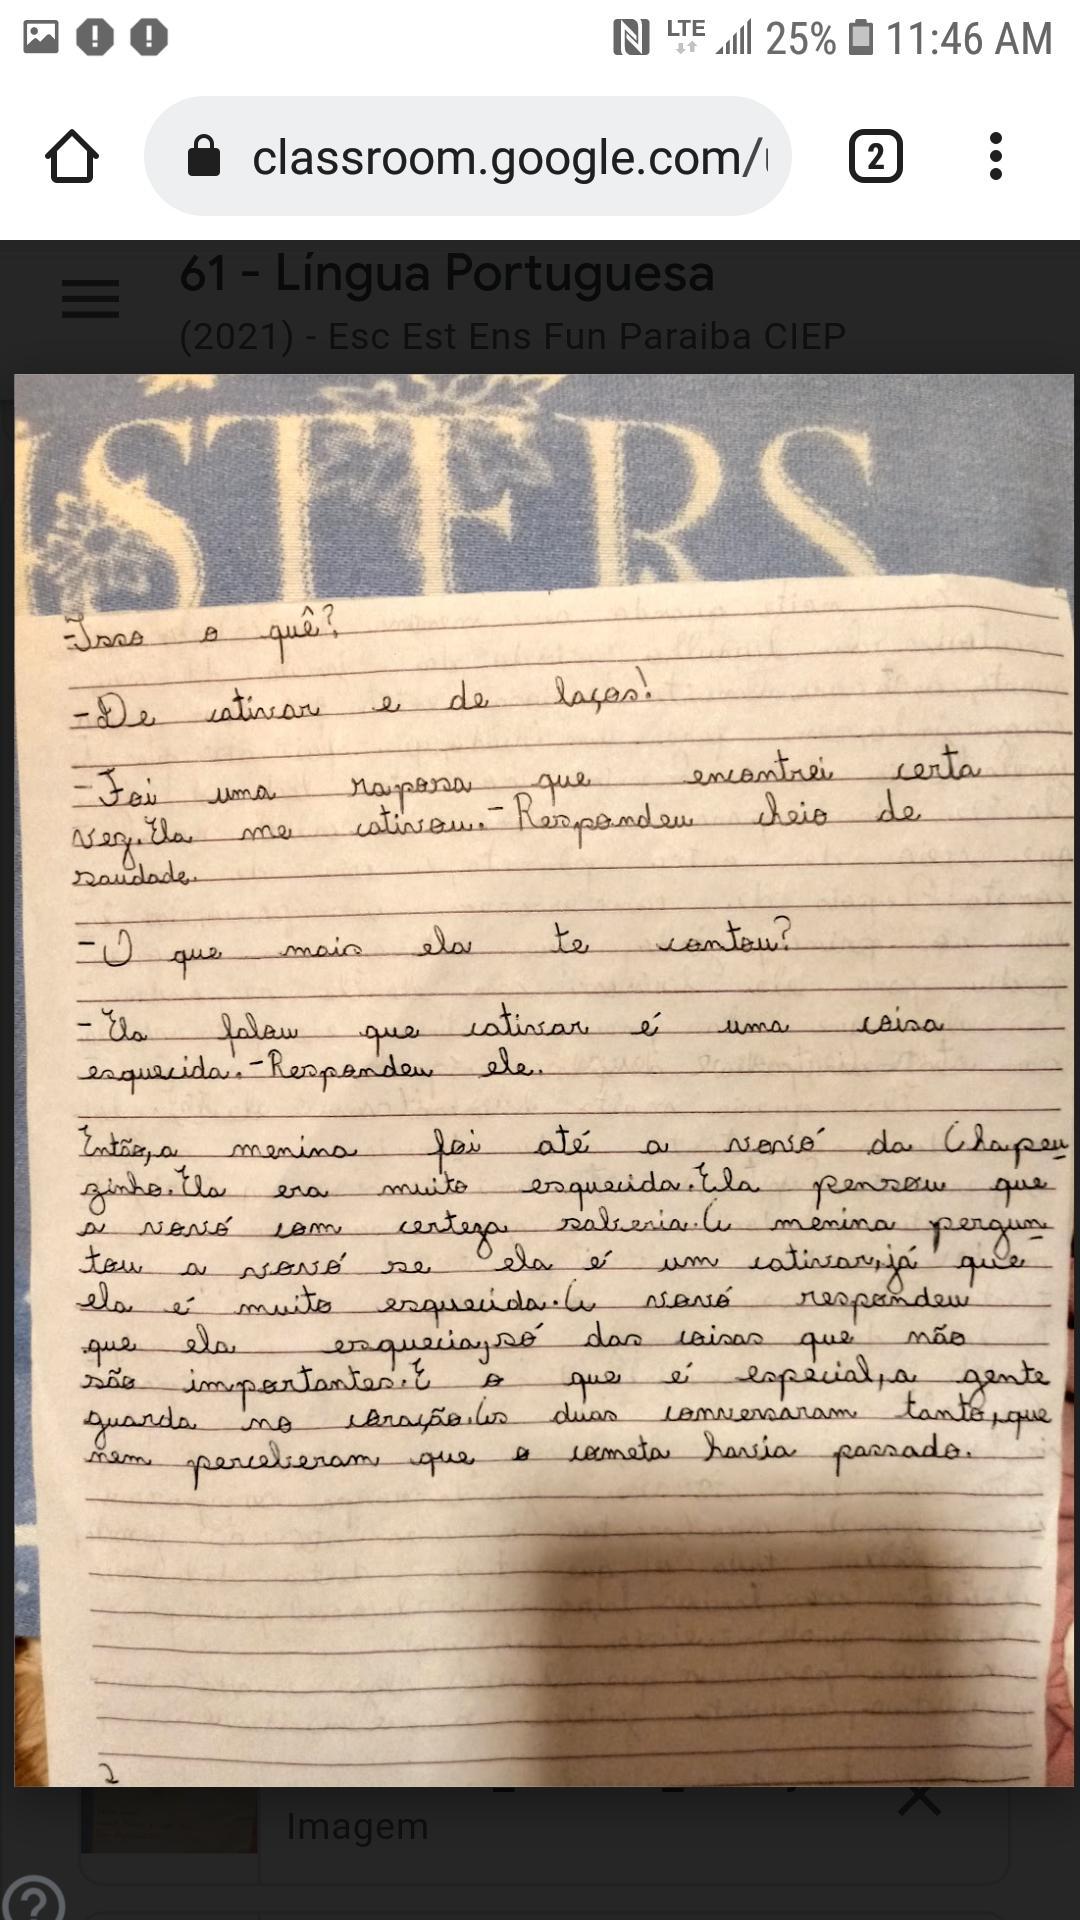 25% 11:46 AM
LTE
classroom.google.com/
2
61 - Língua Portuguesa
(2021) - Esc Est Ens Fun Paraiba CIEP
STERS
-Isso o quê?
-De cativar e de laços!
-Foi uma raposa que encontrei certa
vez. Ela me cativou.-Respondeu cheio de
saudade.
-O que mais ela te contou?
-Ela falou que cativar é uma coisa
esquecida.-Respondeu ele.
Então,a menina foi até a vovó da Chapeu
zinho. Ela era muito esquecida. Ela pensou que
a vovó com certeza saberia. A menina pergun
tou a vovó se ela é um cativar, já que
ela é muito esquecida. A vovó respondeu
que ela esquecia, só das coisas que não
são importantes. E o que é especial, a gente
guarda no coração. As duas conversaram tanto, que
nem perceberam que o cometa havia passado.
2
Imagem